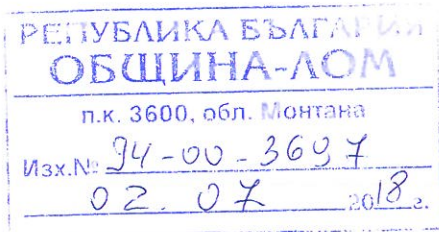 РЕПУБЛИКА БЪЛГАРИЯ
ОБЩИНА-ЛОМ
п.к. 3600, обл. Монтана
Изх.№ 94-00-3697
02.07 2018 г.